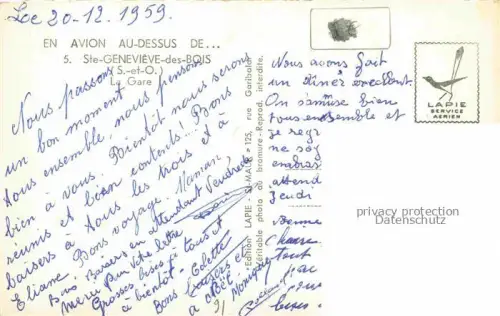 Le 20-12.1959.
EN AVION AU-DESSUS DE...
5. Ste-GENEVIÈVE-des-BOIS
(S.-et-O.)
La Gare
Nous passons
un bon moment
tous ensemble, nous pensons
bien à vous. Bientôt nous serons
réunis et bien contents... Bons
baisers à tous les trois et à
Eliane Bons voyage. Maman
Bons Baisers en attendant Vendredi
Merci pour votre lettre
Grosses bises à tous et
à bientôt. Odette
Bons baisers et
à Monique
Edition LAPIE - St-MAUR - 125, rue Garibaldi
Véritable photo au bromure - Reprod. interdite.
Nous avons fait
un dîner excellent.
On s'amuse bien
tous ensemble et
je
attend
jeudi
Bonne
tout
LAPIE
SERVICE
AÉRIEN
privacy protection
Datenschutz